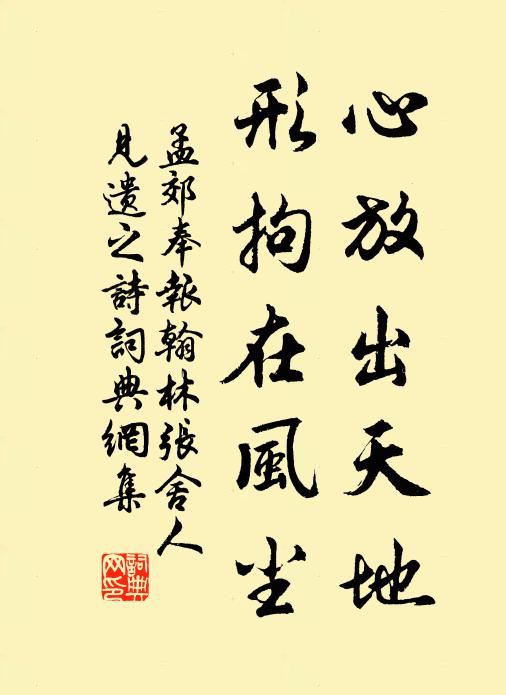 心放出天地
形拘在風尘
孟郊奉報翰林張舍人
見遺之詩詞典網集
詞典
网印